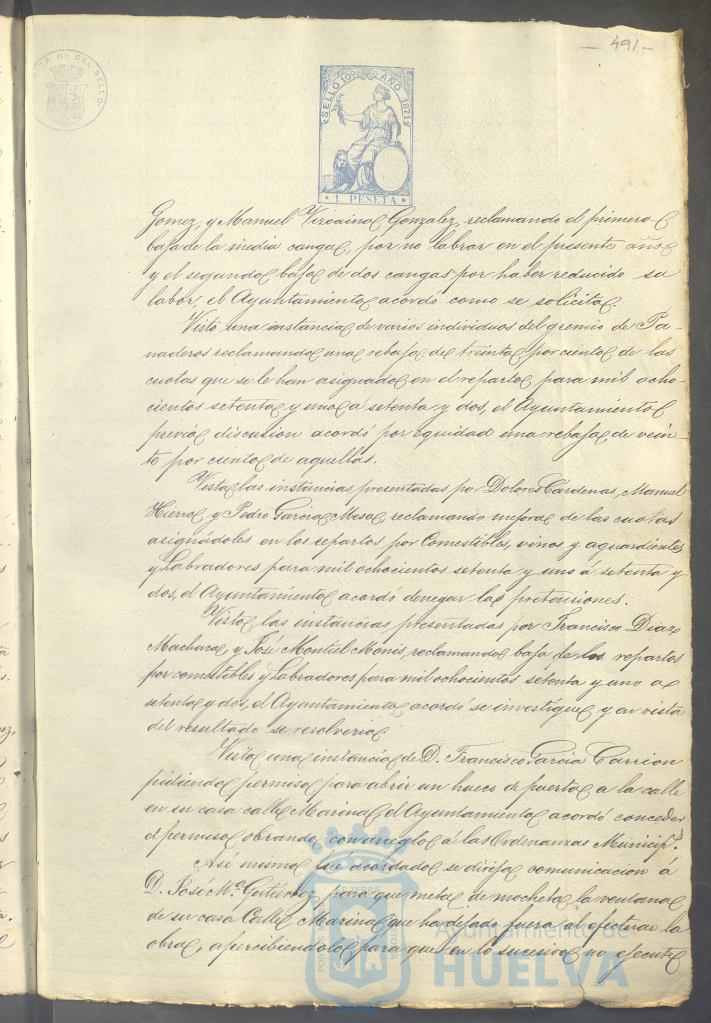 - 491 -
SELLO 10º AÑO 1871
1 PESETA
Gomez, y Manuel Vizcaino Gonzalez, reclamando el primero
baja de la media canga, por no labrar en el presente año
y el segundo baja de dos cangas por haber reducido su
labor, el Ayuntamiento acordó como se solicita
Visto una instancia de varios individuos del gremio de Pa-
naderos reclamando una rebaja del treinta por ciento de las
cuotas que se le han asignado en el reparto para mil ocho-
cientos setenta y uno á setenta y dos, el Ayuntamiento
previa discusion acordó por equidad una rebaja de vein-
te por ciento de aquellas.
Vista las instancias presentadas por Dolores Cárdenas, Manuel
Hierro, y Pedro Garcia Mesa, reclamando mejora de las cuotas
asignadoles en los repartos por Comestibles, vinos y aguardientes
y Labradores para mil ochocientos setenta y uno á setenta y
dos, el Ayuntamiento acordó denegar las pretensiones.
Visto las instancias presentadas por Francisco Diaz
Machuca, y José Montiel Monis, reclamando baja de los repartos
por comestibles y Labradores para mil ochocientos setenta y uno a
setenta y dos, el Ayuntamiento acordó se investigue y en vista
del resultado se resolveria
Visto una instancia de D. Francisco Garcia Carrion
pidiendo permiso para abrir un hueco de puerta a la calle
en su casa calle Marina, el Ayuntamiento acordó conceder
el permiso obrando con arreglo á las Ordenanzas Municips.
Asi mismo fué acordado se dirija comunicacion á
D. José Mª Gutiérrez, para que meta de mocheta la ventana
de su casa Calle Marina que ha dejado fuera al efectuar la
obra, apercibiendole para que en lo sucesivo no ejecute
Ayuntamiento de
HUELVA